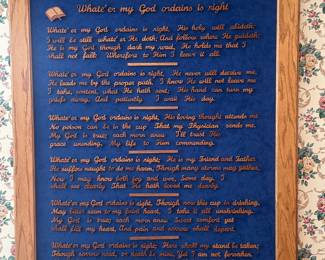 Whate'er my God ordains is right
Whate'er my God ordains is right, His holy will abideth;
I will be still whate'er He doth; And follow where He guideth;
He is my God though dark my road, He holds me that I
shall not fall: Wherefore to Him I leave it all.
Whate'er my God ordains is right, He never will deceive me.
He leads me by the proper path. I know He will not leave me
I take, content, what He hath sent; His hand can turn my
griefs away, And patiently I wait His day.
Whate'er my God ordains is right, His loving thought attends me
No poison can be in the cup That my Physician sends me.
My God is true; each morn anew I'll trust His
grace unending, My life to Him commending.
Whate'er my God ordains is right; He is my Friend and Father
He suffers naught to do me harm, Though many storms may gather,
Now I may know both joy and woe, Some day I
shall see clearly That He hath loved me dearly.
Whate'er my God ordains is right, Though now this cup in drinking,
May bitter seem to my faint heart, I take it all unshrinking.
My God is true; each morn anew Sweet comfort yet
shall fill my heart, And pain and sorrow shall depart.
Whate'er my God ordains is right; Here shall my stand be taken;
Though sorrow need, or death be mine, Yet I am not forsaken,